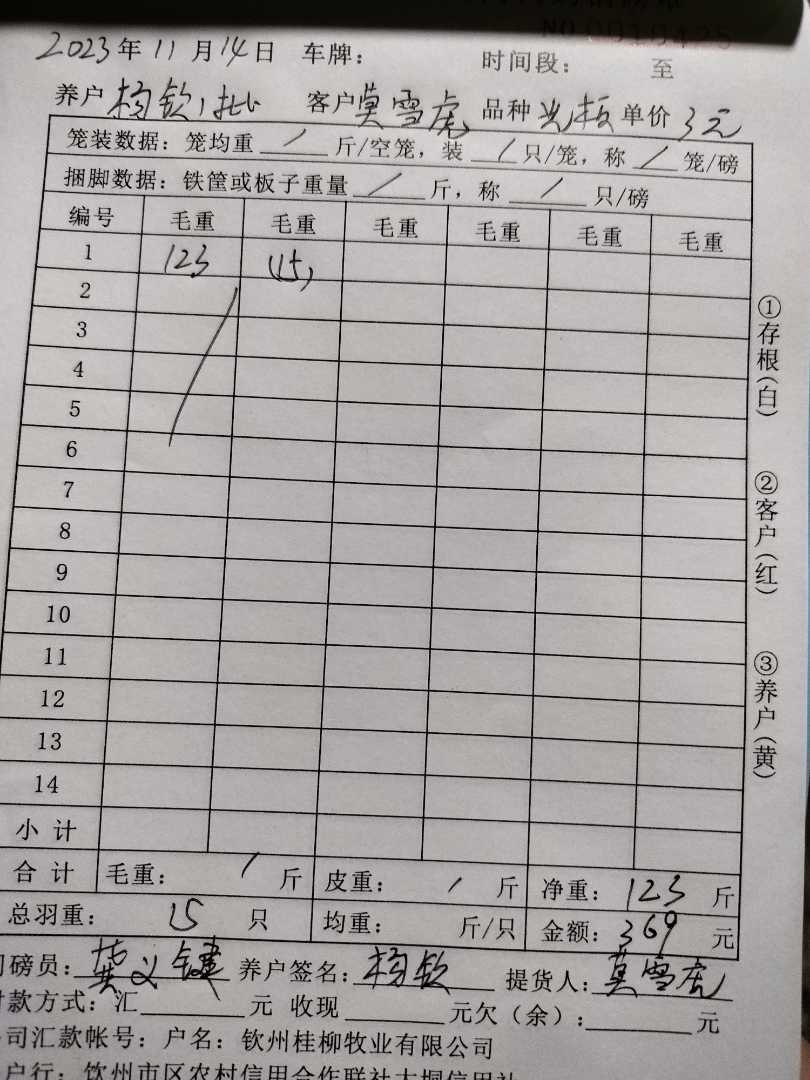 NO 0010425
2023年11月14日 车牌： 时间段： 至
养户 杨钦1批 客户 莫雪虎 品种 光板 单价 3元
笼装数据：笼均重 / 斤/空笼，装 / 只/笼，称 / 笼/磅
捆脚数据：铁筐或板子重量 / 斤，称 / 只/磅
编号 毛重 毛重 毛重 毛重 毛重 毛重
1 123 (15)
2
3
4
5
6
7
8
9
10
11
12
13
14
小计
合计 毛重： / 斤 皮重： / 斤 净重：123 斤
总羽重： 15 只 均重： 斤/只 金额：369 元
磅员：龚义键 养户签名：杨钦 提货人：莫雪虎
款方式：汇 元 收现 元欠（余）： 元
司汇款帐号：户名：钦州桂柳牧业有限公司
户行：钦州市区农村信用合作联社大垌信用社
①存根（白）
②客户（红）
③养户（黄）